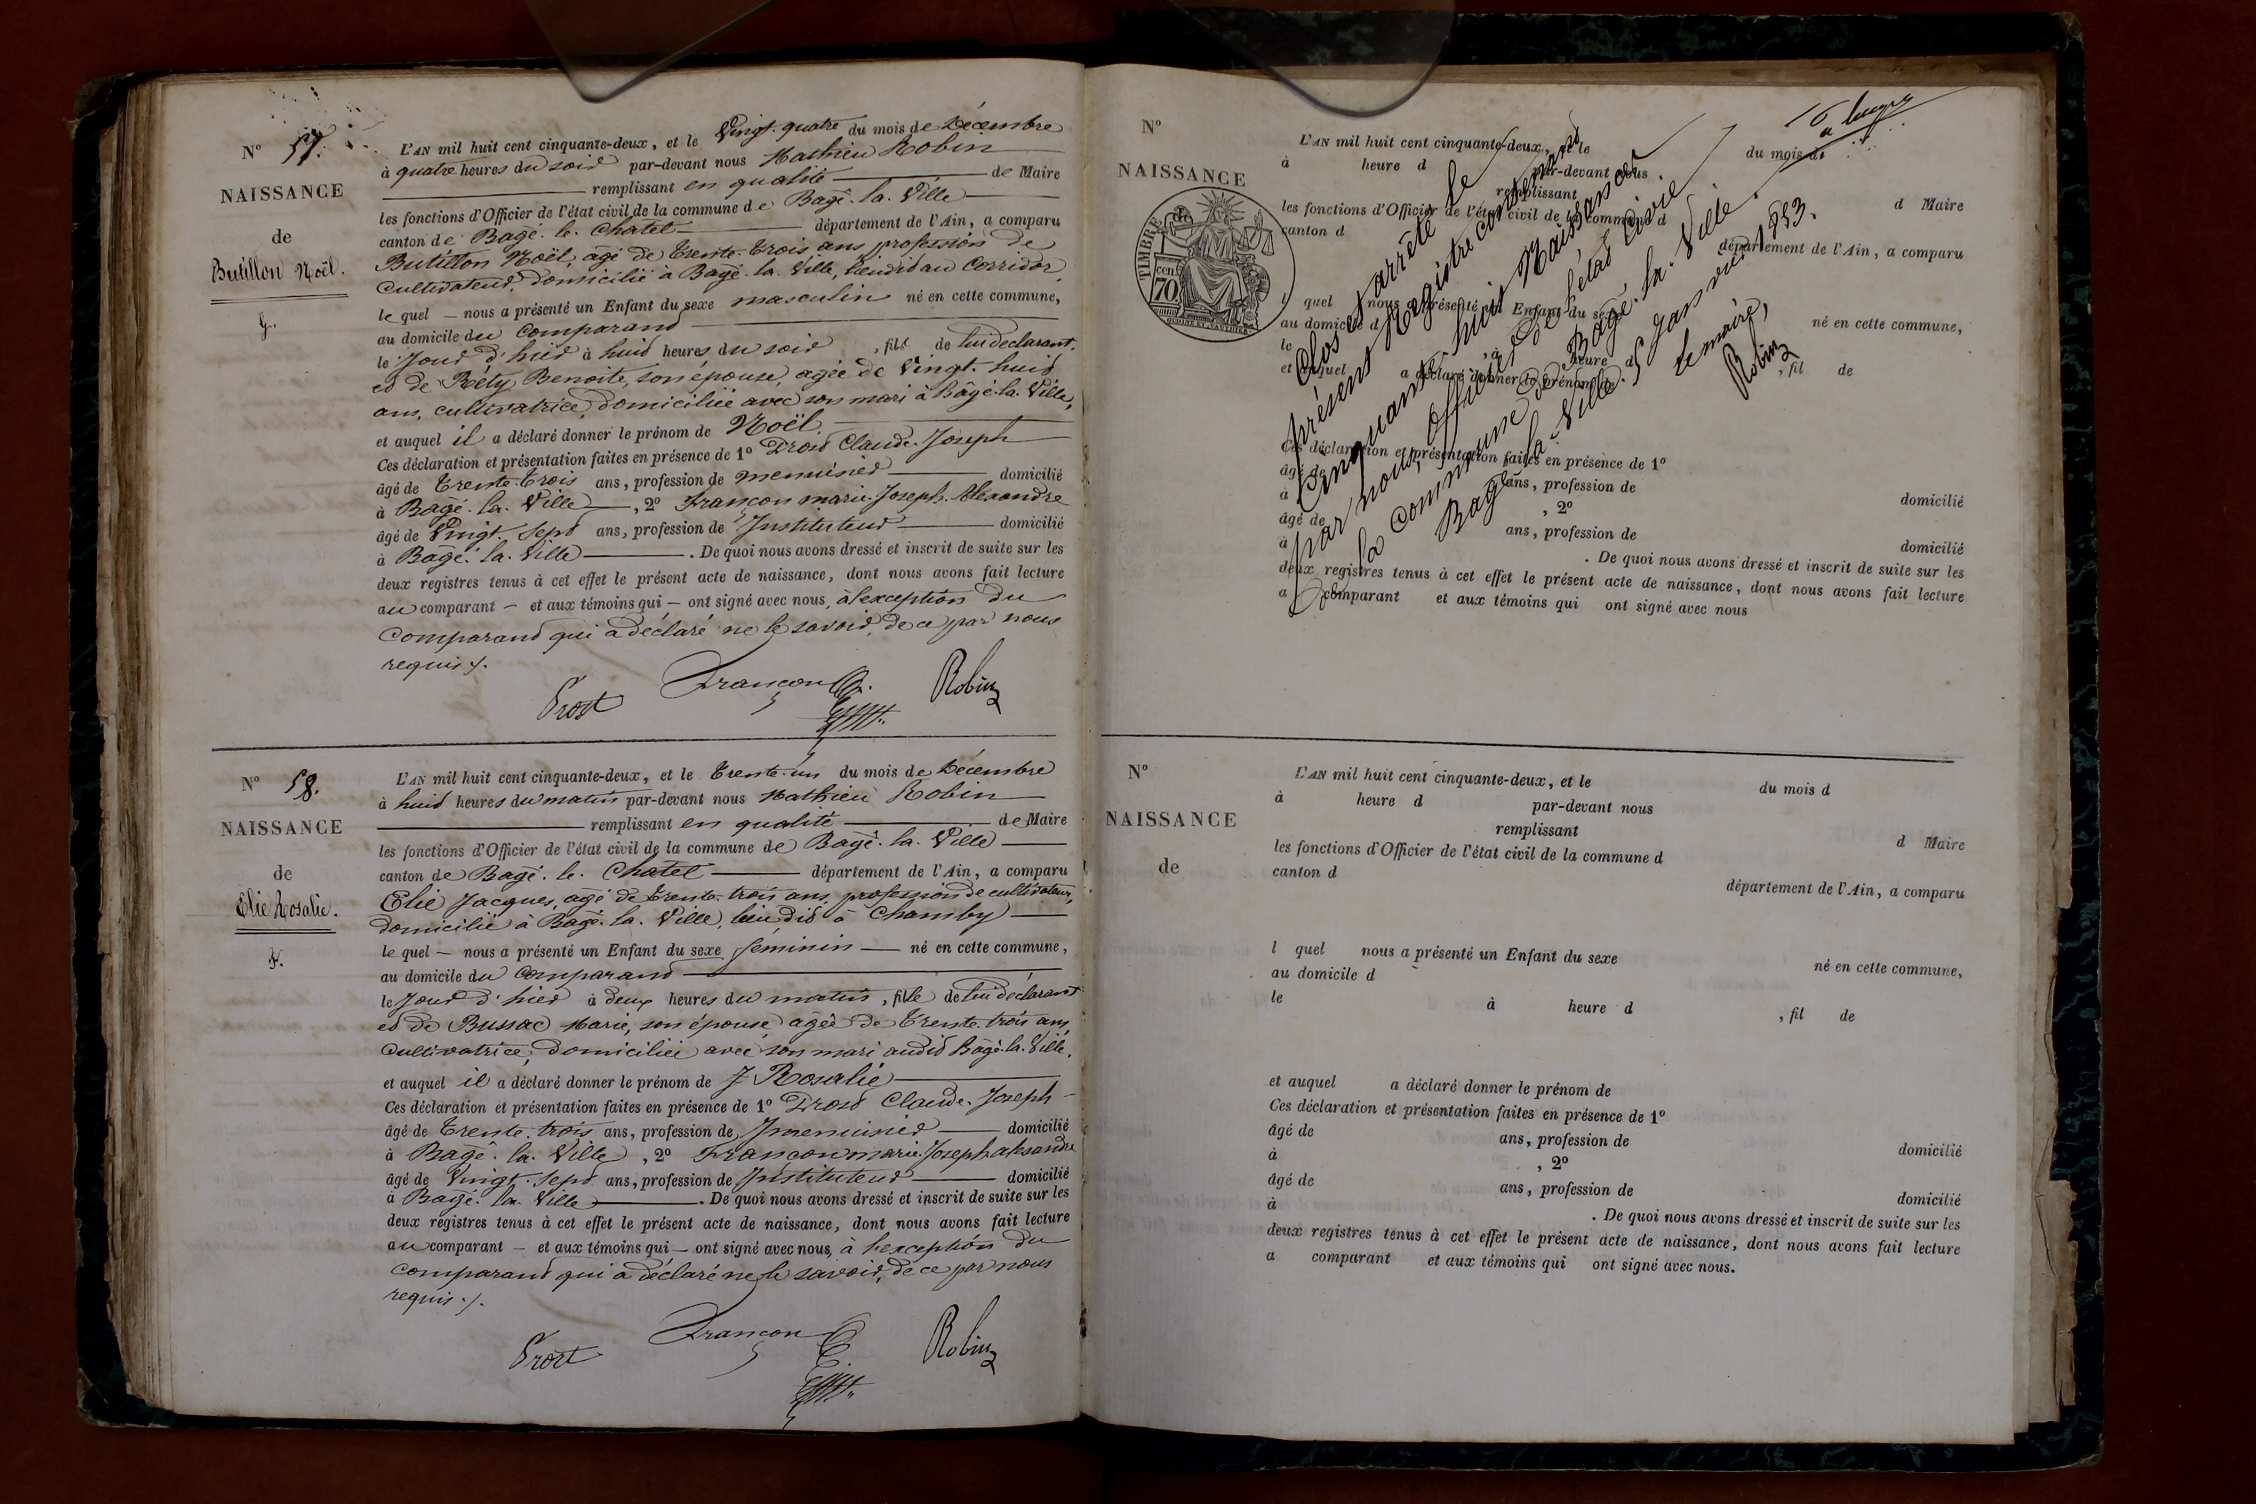 N° 57.
NAISSANCE
de
Butillon Noël.
g.
L'AN mil huit cent cinquante-deux, et le Vingt-quatre du mois de Décembre
à quatre heures du soir par-devant nous Mathieu Robin
remplissant en qualité de Maire
les fonctions d'Officier de l'état civil de la commune de Bagé-la-Ville
canton de Bagé-le-Chatel département de l'Ain, a comparu
Butillon Noël, agé de trente-trois ans profession de
Cultivateur, domicilié à Bagé-la-Ville, lieudit au Corridor
le quel — nous a présenté un Enfant du sexe masculin né en cette commune,
au domicile du Comparant
le Jour d'hier à huit heures du soir, fils de lui déclarant,
et de Réty Benoite, son épouse, agée de Vingt-huit
ans, cultivatrice, domiciliée avec son mari à Bâgé-la-Ville,
et auquel il a déclaré donner le prénom de Noël.
Ces déclaration et présentation faites en présence de 1° Prost Claude-Joseph
âgé de trente-trois ans, profession de menuisier domicilié
à Bagé-la-Ville, 2° Françon marie-Joseph-Alexandre
âgé de Vingt-Sept ans, profession de Instituteur domicilié
à Bagé-la-Ville. De quoi nous avons dressé et inscrit de suite sur les
deux registres tenus à cet effet le présent acte de naissance, dont nous avons fait lecture
au comparant — et aux témoins qui — ont signé avec nous, à l'exception du
Comparant qui a déclaré ne le savoir, de ce par nous
requis ./.
Prost Françon Robin
N° 58.
NAISSANCE
de
Elie Rosalie.
L'AN mil huit cent cinquante-deux, et le trente-un du mois de Décembre
à huit heures du matin par-devant nous Mathieu Robin
remplissant en qualité de Maire
les fonctions d'Officier de l'état civil de la commune de Bagé-la-Ville
canton de Bagé-le-Chatel département de l'Ain, a comparu
Elie Jacques, agé de trente-trois ans, profession de cultivateur,
domicilié à Bagé-la-Ville, lieu dit à Chamby
le quel — nous a présenté un Enfant du sexe féminin — né en cette commune,
au domicile du Comparant
le Jour d'hier à deux heures du matin, fille de lui déclarant
et de Bussac Marie, son épouse agée de trente-trois ans,
Cultivatrice, domiciliée avec son mari audit Bâgé-la-Ville,
et auquel il a déclaré donner le prénom de Rosalie
Ces déclaration et présentation faites en présence de 1° Prost Claude-Joseph
âgé de trente-trois ans, profession de menuisier domicilié
à Bagé-la-Ville, 2° Françon marie-Joseph alexandre
âgé de Vingt-Sept ans, profession de Instituteur domicilié
à Bagé-la-Ville. De quoi nous avons dressé et inscrit de suite sur les
deux registres tenus à cet effet le présent acte de naissance, dont nous avons fait lecture
au comparant — et aux témoins qui — ont signé avec nous, à l'exception du
comparant qui a déclaré ne le savoir, de ce par nous
requis ./.
Prost Françon Robin
N°
NAISSANCE
TIMBRE
70 cent.
L'AN mil huit cent cinquante-deux, et le du mois d
à heure d par-devant nous
remplissant d Maire
les fonctions d'Officier de l'état civil de la commune d
canton d département de l'Ain, a comparu
l quel nous a présenté un Enfant du sexe né en cette commune,
au domicile d
le à heure d, fil de
et auquel a déclaré donner le prénom de
Ces déclaration et présentation faites en présence de 1°
âgé de ans, profession de domicilié
à, 2°
âgé de ans, profession de domicilié
à. De quoi nous avons dressé et inscrit de suite sur les
deux registres tenus à cet effet le présent acte de naissance, dont nous avons fait lecture
a comparant et aux témoins qui ont signé avec nous
Clos et arrêté le
présent Registre contenant
Cinquante-huit Naissances
par nous, Officier de l'état Civil
de la Commune de Bagé-la-Ville.
Bagé-la-Ville, 5 Janvier 1853.
Le maire,
Robin
N°
NAISSANCE
de
L'AN mil huit cent cinquante-deux, et le du mois d
à heure d par-devant nous
remplissant d Maire
les fonctions d'Officier de l'état civil de la commune d
canton d département de l'Ain, a comparu
l quel nous a présenté un Enfant du sexe né en cette commune,
au domicile d
le à heure d, fil de
et auquel a déclaré donner le prénom de
Ces déclaration et présentation faites en présence de 1°
âgé de ans, profession de domicilié
à, 2°
âgé de ans, profession de domicilié
à. De quoi nous avons dressé et inscrit de suite sur les
deux registres tenus à cet effet le présent acte de naissance, dont nous avons fait lecture
a comparant et aux témoins qui ont signé avec nous.